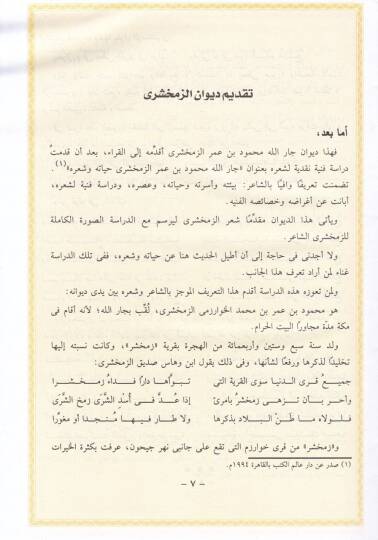 تقديم ديوان الزمخشرى
أما بعد،
فهذا ديوان جار الله محمود بن عمر الزمخشرى أقدّمه إلى القراء، بعد أن قدمتُ
دراسة فنية نقدية لشعره بعنوان «جار الله محمود بن عمر الزمخشرى حياته وشعره»(١).
تضمنت تعريفًا وافيًا بالشاعر: بيئته وأسرته وحياته، وعصره، ودراسة فنية لشعره،
أبانت عن أغراضه وخصائصه الفنيه.
ويأتى هذا الديوان مقدمًا شعر الزمخشرى ليرسم مع الدراسة الصورة الكاملة
للزمخشرى الشاعر.
ولا أجدنى فى حاجة إلى أن أطيل الحديث هنا عن حياته وشعره، ففى تلك الدراسة
غناء لمن أراد تعرف هذا الجانب.
ولمن تعوزه هذه الدراسة أقدم هذا التعريف الموجز بالشاعر وشعره بين يدى ديوانه:
هو محمود بن عمر بن محمد الخوارزمى الزمخشرى، لُقّب بجار الله؛ لأنه أقام فى
مكة مدّة مجاورًا البيت الحرام.
ولد سنة سبع وستين وأربعمائة من الهجرة بقرية «زمخشر»، وكانت نسبته إليها
تخليدًا لذكرها ورفعًا لشأنها، وفى ذلك يقول ابن وهاس صديق الزمخشرى:
جميعُ قرى الدنيا سوى القرية التى تبوّأها دارًا فداءُ زمخشرا
وأحرِ بأن تزهى زمخشرُ بامرئ إذا عُدّ فى أُسْدِ الشَّرَى زمخ الشَّرَى
فلولاه ما طنّ البلاد بذكرها ولا طار فيها مُنجدا أو مغوّرا
و«زمخشر» من قرى خوارزم التى تقع على جانبى نهر جيحون، عرفت بكثرة الخيرات
(١) صدر عن دار عالم الكتب بالقاهرة ١٩٩٤م.
- ٧ -